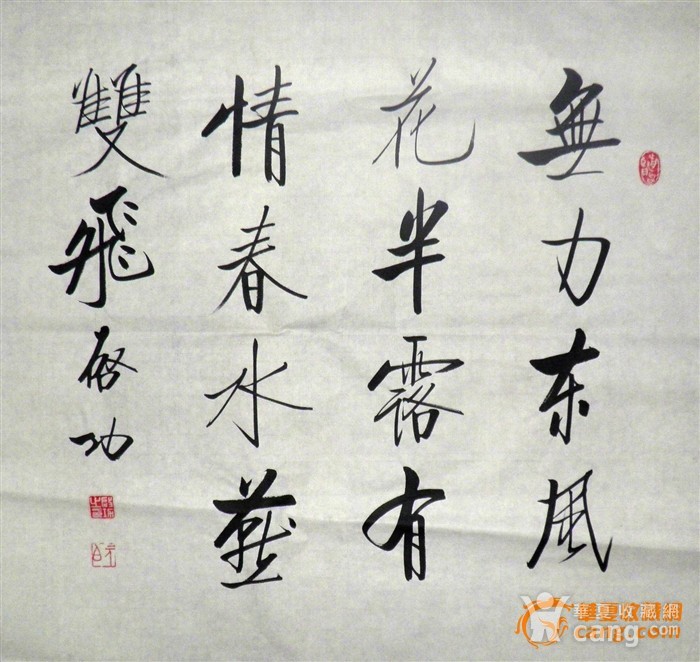 無力东風
花半露有
情春水燕
雙飛启功
華夏收藏網
cang.com